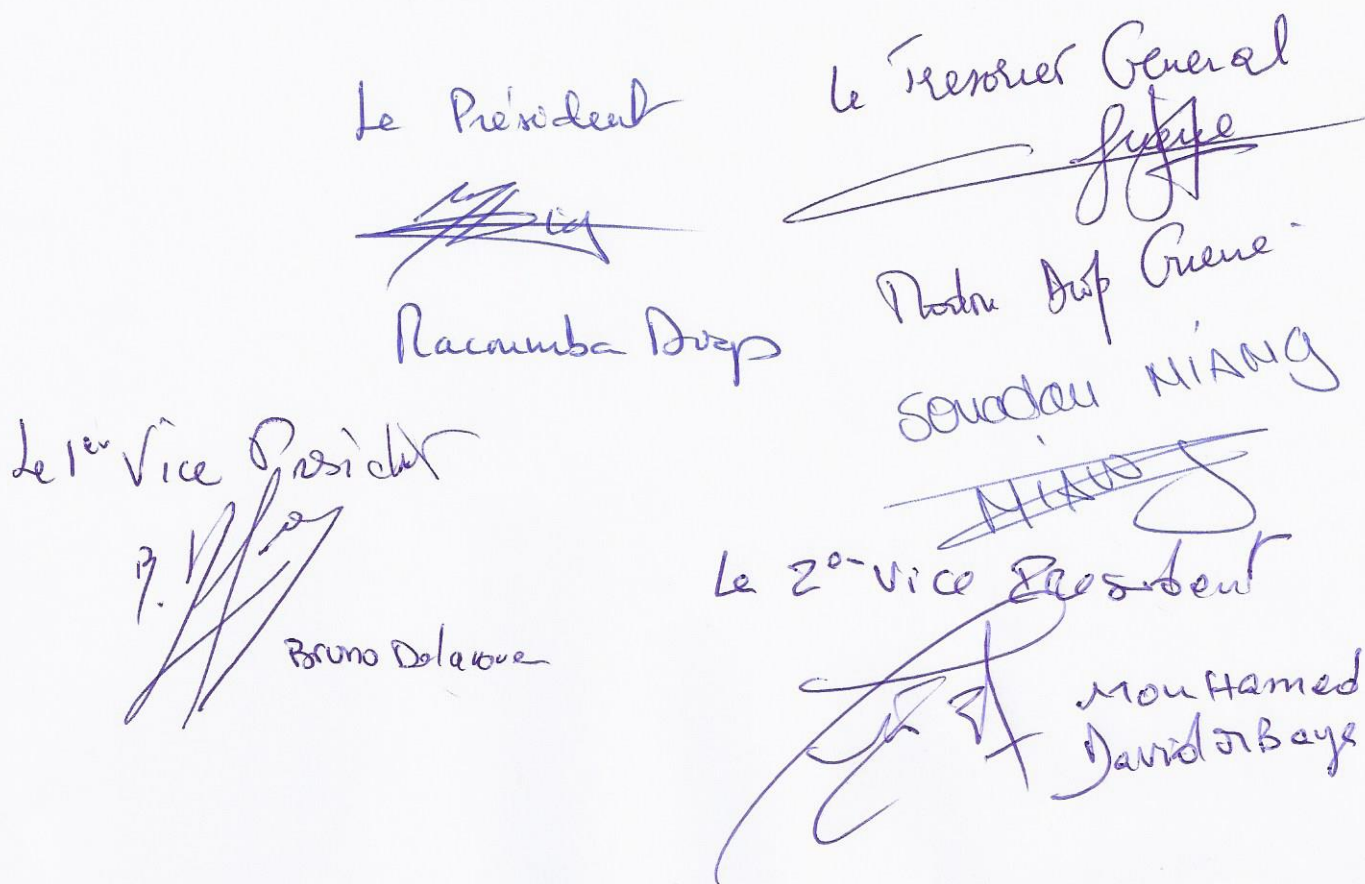 Le Président
Macoumba Diop
Le Tresorier General
Gueye
Modou Diop Gueye
Souadou NIANG
NIANG
Le 1er Vice Président
B.
Bruno Delacroix
Le 2e Vice President
MouHamed
David MBaye